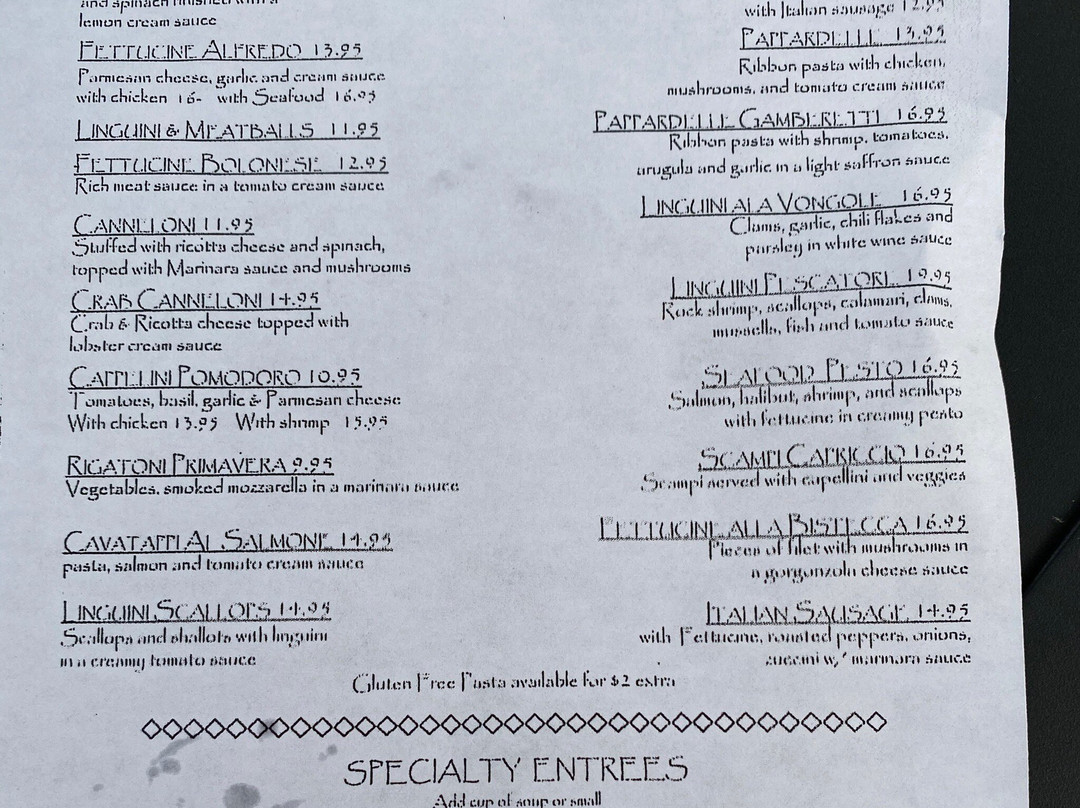 and spinach finished with a
lemon cream sauce
FETTUCINE ALFREDO 13.95
Parmesan cheese, garlic and cream sauce
with chicken 16- with Seafood 16.95
LINGUINI & MEATBALLS 11.95
FETTUCINE BOLONESE 12.95
Rich meat sauce in a tomato cream sauce
CANNELONI 11.95
Stuffed with ricotta cheese and spinach,
topped with Marinara sauce and mushrooms
CRAB CANNELONI 14.95
Crab & Ricotta cheese topped with
lobster cream sauce
CAPPELINI POMODORO 10.95
Tomatoes, basil, garlic & Parmesan cheese
With chicken 13.95 With shrimp 15.95
RIGATONI PRIMAVERA 9.95
Vegetables, smoked mozzarella in a marinara sauce
CAVATAPPI AL SALMONE 14.95
pasta, salmon and tomato cream sauce
LINGUINI SCALLOPS 14.95
Scallops and shallots with linguini
in a creamy tomato sauce
with Italian sausage 12.95
PAPPARDELLE 13.95
Ribbon pasta with chicken,
mushrooms, and tomato cream sauce
PAPPARDELLE GAMBERETTI 16.95
Ribbon pasta with shrimp, tomatoes,
arugula and garlic in a light saffron sauce
LINGUINI ALA VONGOLE 16.95
Clams, garlic, chili flakes and
parsley in white wine sauce
LINGUINI PESCATORE 19.95
Rock shrimp, scallops, calamari, clams,
mussells, fish and tomato sauce
SEAFOOD PESTO 16.95
Salmon, halibut, shrimp, and scallops
with fettucine in creamy pesto
SCAMPI CAPRICCIO 16.95
Scampi served with capellini and veggies
FETTUCINE ALLA BISTECCA 16.95
Pieces of filet with mushrooms in
a gorgonzola cheese sauce
ITALIAN SAUSAGE 14.95
with Fettucine, roasted peppers, onions,
zuccini w/ marinara sauce
Gluten Free Pasta available for $2 extra
SPECIALTY ENTREES
Add cup of soup or small